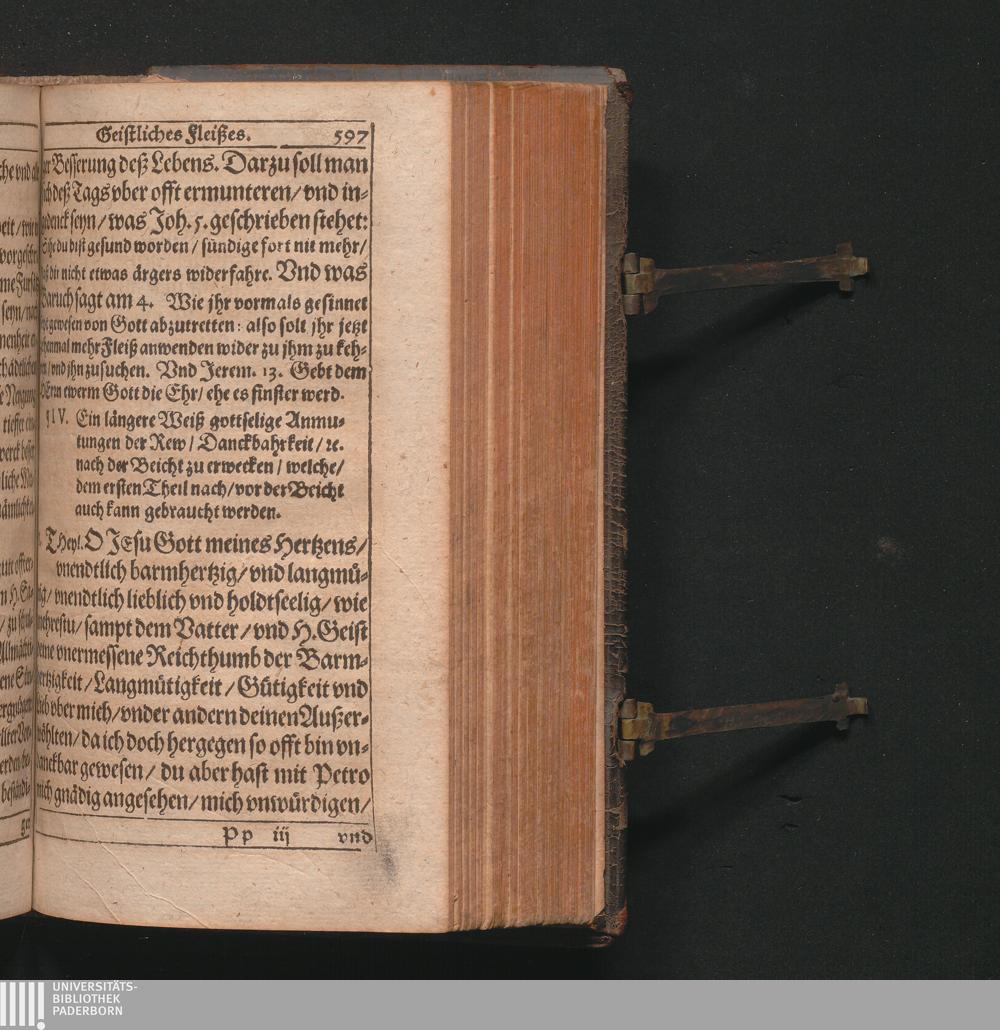 Geistliches Fleißes. 597
Besserung deß Lebens. Darzu soll man
deß Tags vber offt ermunteren / vnd in-
gedenck seyn / was Joh. 5. geschrieben stehet:
Sihe du bist gesund worden / sündige fort nit mehr /
dir nicht etwas ärgers widerfahre. Vnd was
Baruch sagt am 4. Wie jhr vormals gesinnet
gewesen von Gott abzutretten: also solt jhr jetzt
zehenmal mehr Fleiß anwenden wider zu jhm zu keh-
ren / vnd jhn zu suchen. Vnd Jerem. 13. Gebt dem
HErrn ewerm Gott die Ehr / ehe es finster werd.
§ IV. Ein längere Weiß gottselige Anmu-
tungen der Rew / Danckbahrkeit / ꝛc.
nach der Beicht zu erwecken / welche /
dem ersten Theil nach / vor der Beicht
auch kann gebraucht werden.
THeyl. O JEsu Gott meines Hertzens /
vnendtlich barmhertzig / vnd langmü-
tig / vnendtlich lieblich vnd holdtseelig / wie
mehrestu / sampt dem Vatter / vnd H. Geist
deine vnermessene Reichthumb der Barm-
hertzigkeit / Langmütigkeit / Gütigkeit vnd
Lieb vber mich / vnder andern deinen Außer-
wöhlten / da ich doch hergegen so offt bin vn-
danckbar gewesen / du aber hast mit Petro
mich gnädig angesehen / mich vnwürdigen /
Pp iij vnd
UNIVERSITÄTS-
BIBLIOTHEK
PADERBORN